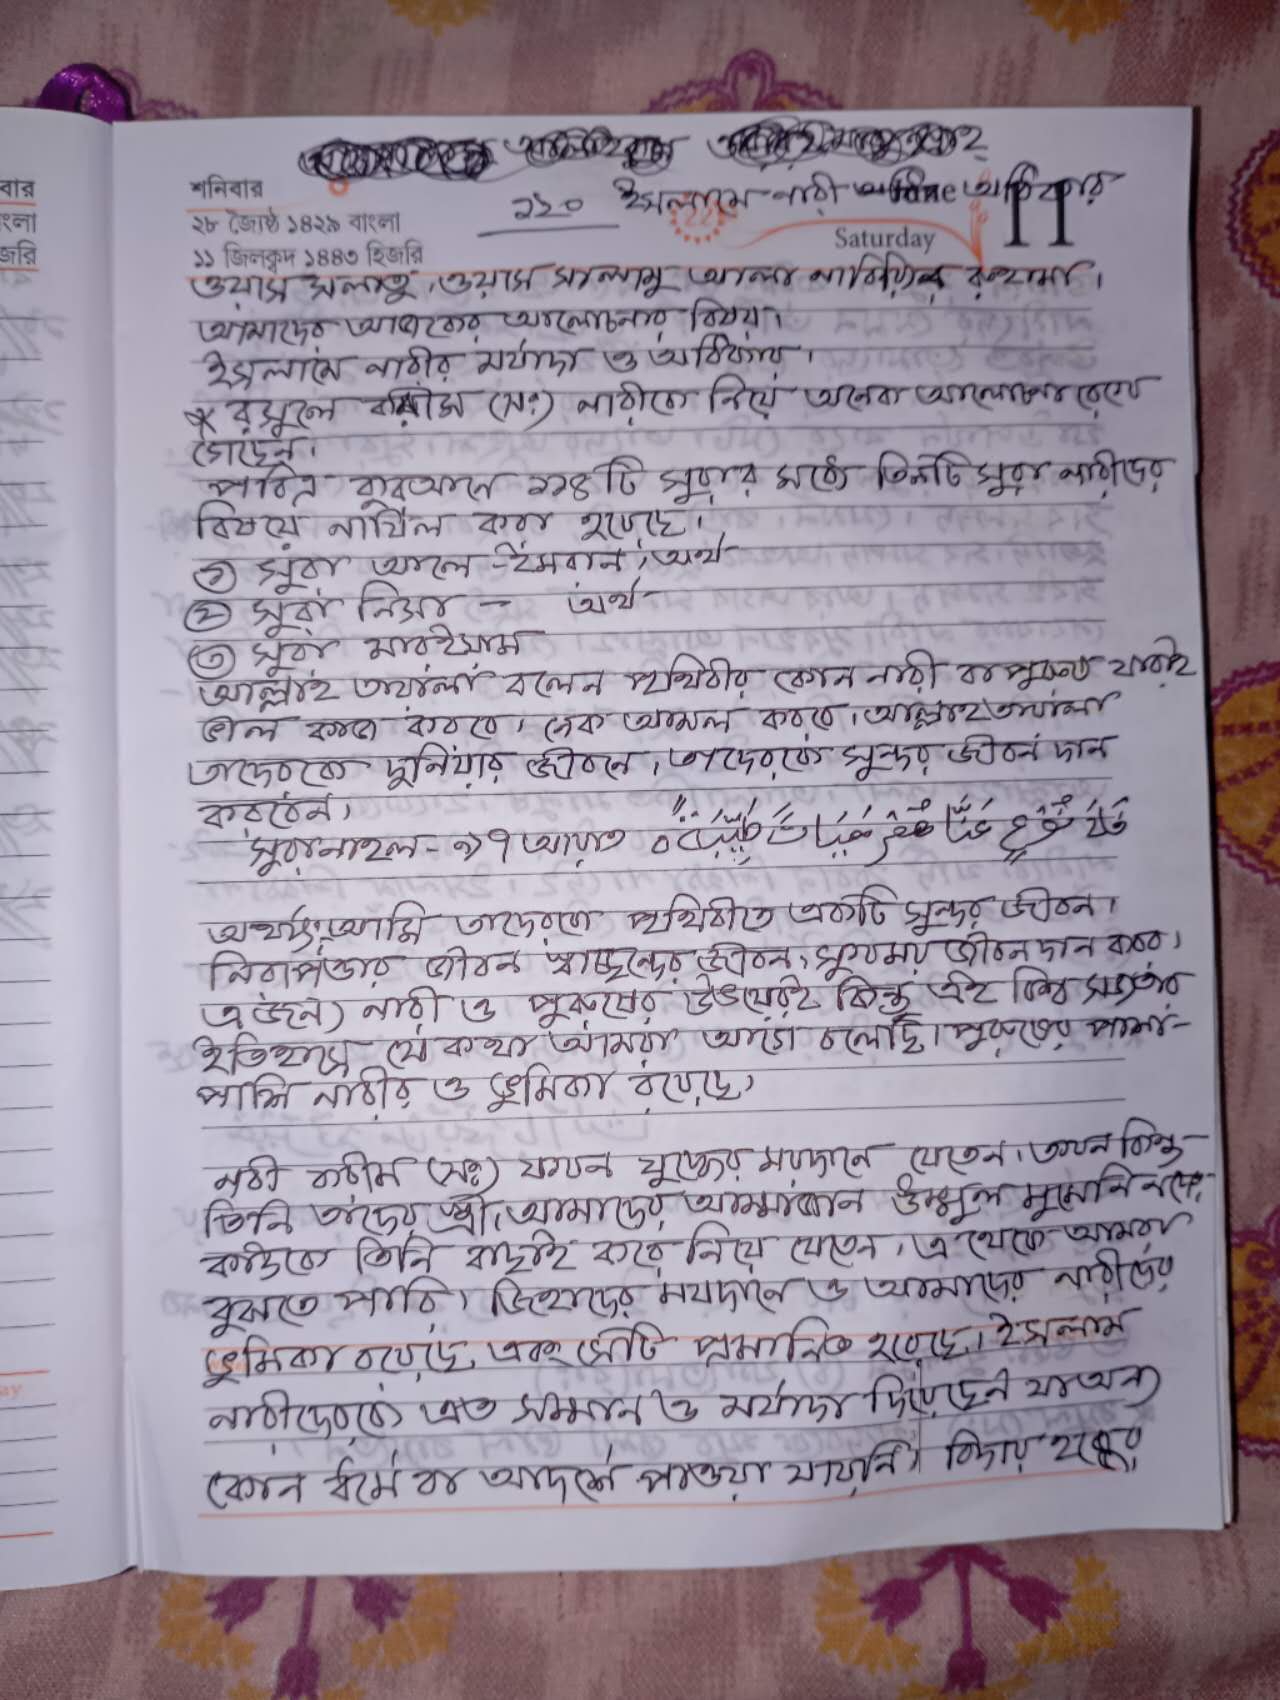 শনিবার
২৮ জ্যৈষ্ঠ ১৪২৯ বাংলা
১১ জিলক্বদ ১৪৪৩ হিজরি
২২০ ইসলামে নারী অধিকার
22
June
11
Saturday
ওয়াস সলাতু, ওয়াস সালামু আলা
আমাদের আজকের আলোচনার বিষয়।
ইসলামে নারীর মর্যাদা ও অধিকার।
* রসুলে করীম (সঃ) নারীকে নিয়ে অনেক আলোচনা রেখে
গেছেন।
পবিত্র কুরআনে ১১৪ টি সুরার মধ্যে তিনটি সুরা নারীদের
বিষয়ে নাযিল করা হয়েছে।
১) সুরা আলে-ইমরান, অর্থ-
২) সুরা নিসা - অর্থ-
৩) সুরা মারইয়াম
আল্লাহ তায়ালা বলেন পৃথিবীর কোন নারী বা পুরুষ যারাই
ভাল কাজ করবে। নেক আমল করবে। আল্লাহ তায়ালা
তাদেরকে দুনিয়ার জীবনে, তাদেরকে সুন্দর জীবন দান
করবেন।
সুরা নাহল- ৯৭ আয়াত
অর্থাৎ আমি তাদেরকে পৃথিবীতে একটি সুন্দর জীবন।
নিরাপত্তার জীবন স্বাচ্ছন্দের জীবন, সুখময় জীবন দান করব।
নারী ও পুরুষের উভয়েরই কিন্তু এই বিশ্ব সভ্যতার
ইতিহাসে যে কথা আমরা আগে বলেছি। পুরুষের পাশা-
পাশি নারীর ও ভুমিকা রয়েছে,
নবী করীম (সঃ) যখন যুদ্ধের ময়দানে যেতেন। তখন কিন্তু
তিনি তাঁদের স্ত্রী, আমাদের আম্মাজান উম্মুল
কাউকে তিনি বাছাই করে নিয়ে যেতেন, এ থেকে আমরা
বুঝতে পারি। জিহাদের ময়দানে ও আমাদের নারীদের
ভুমিকা রয়েছে, এবং সেটি প্রমানিত হয়েছে। ইসলাম
নারীদেরকে এত সম্মান ও মর্যাদা দিয়েছেন যা অন্য
কোন ধর্মে বা আদর্শে পাওয়া যায়নি। বিদায় হজ্জের